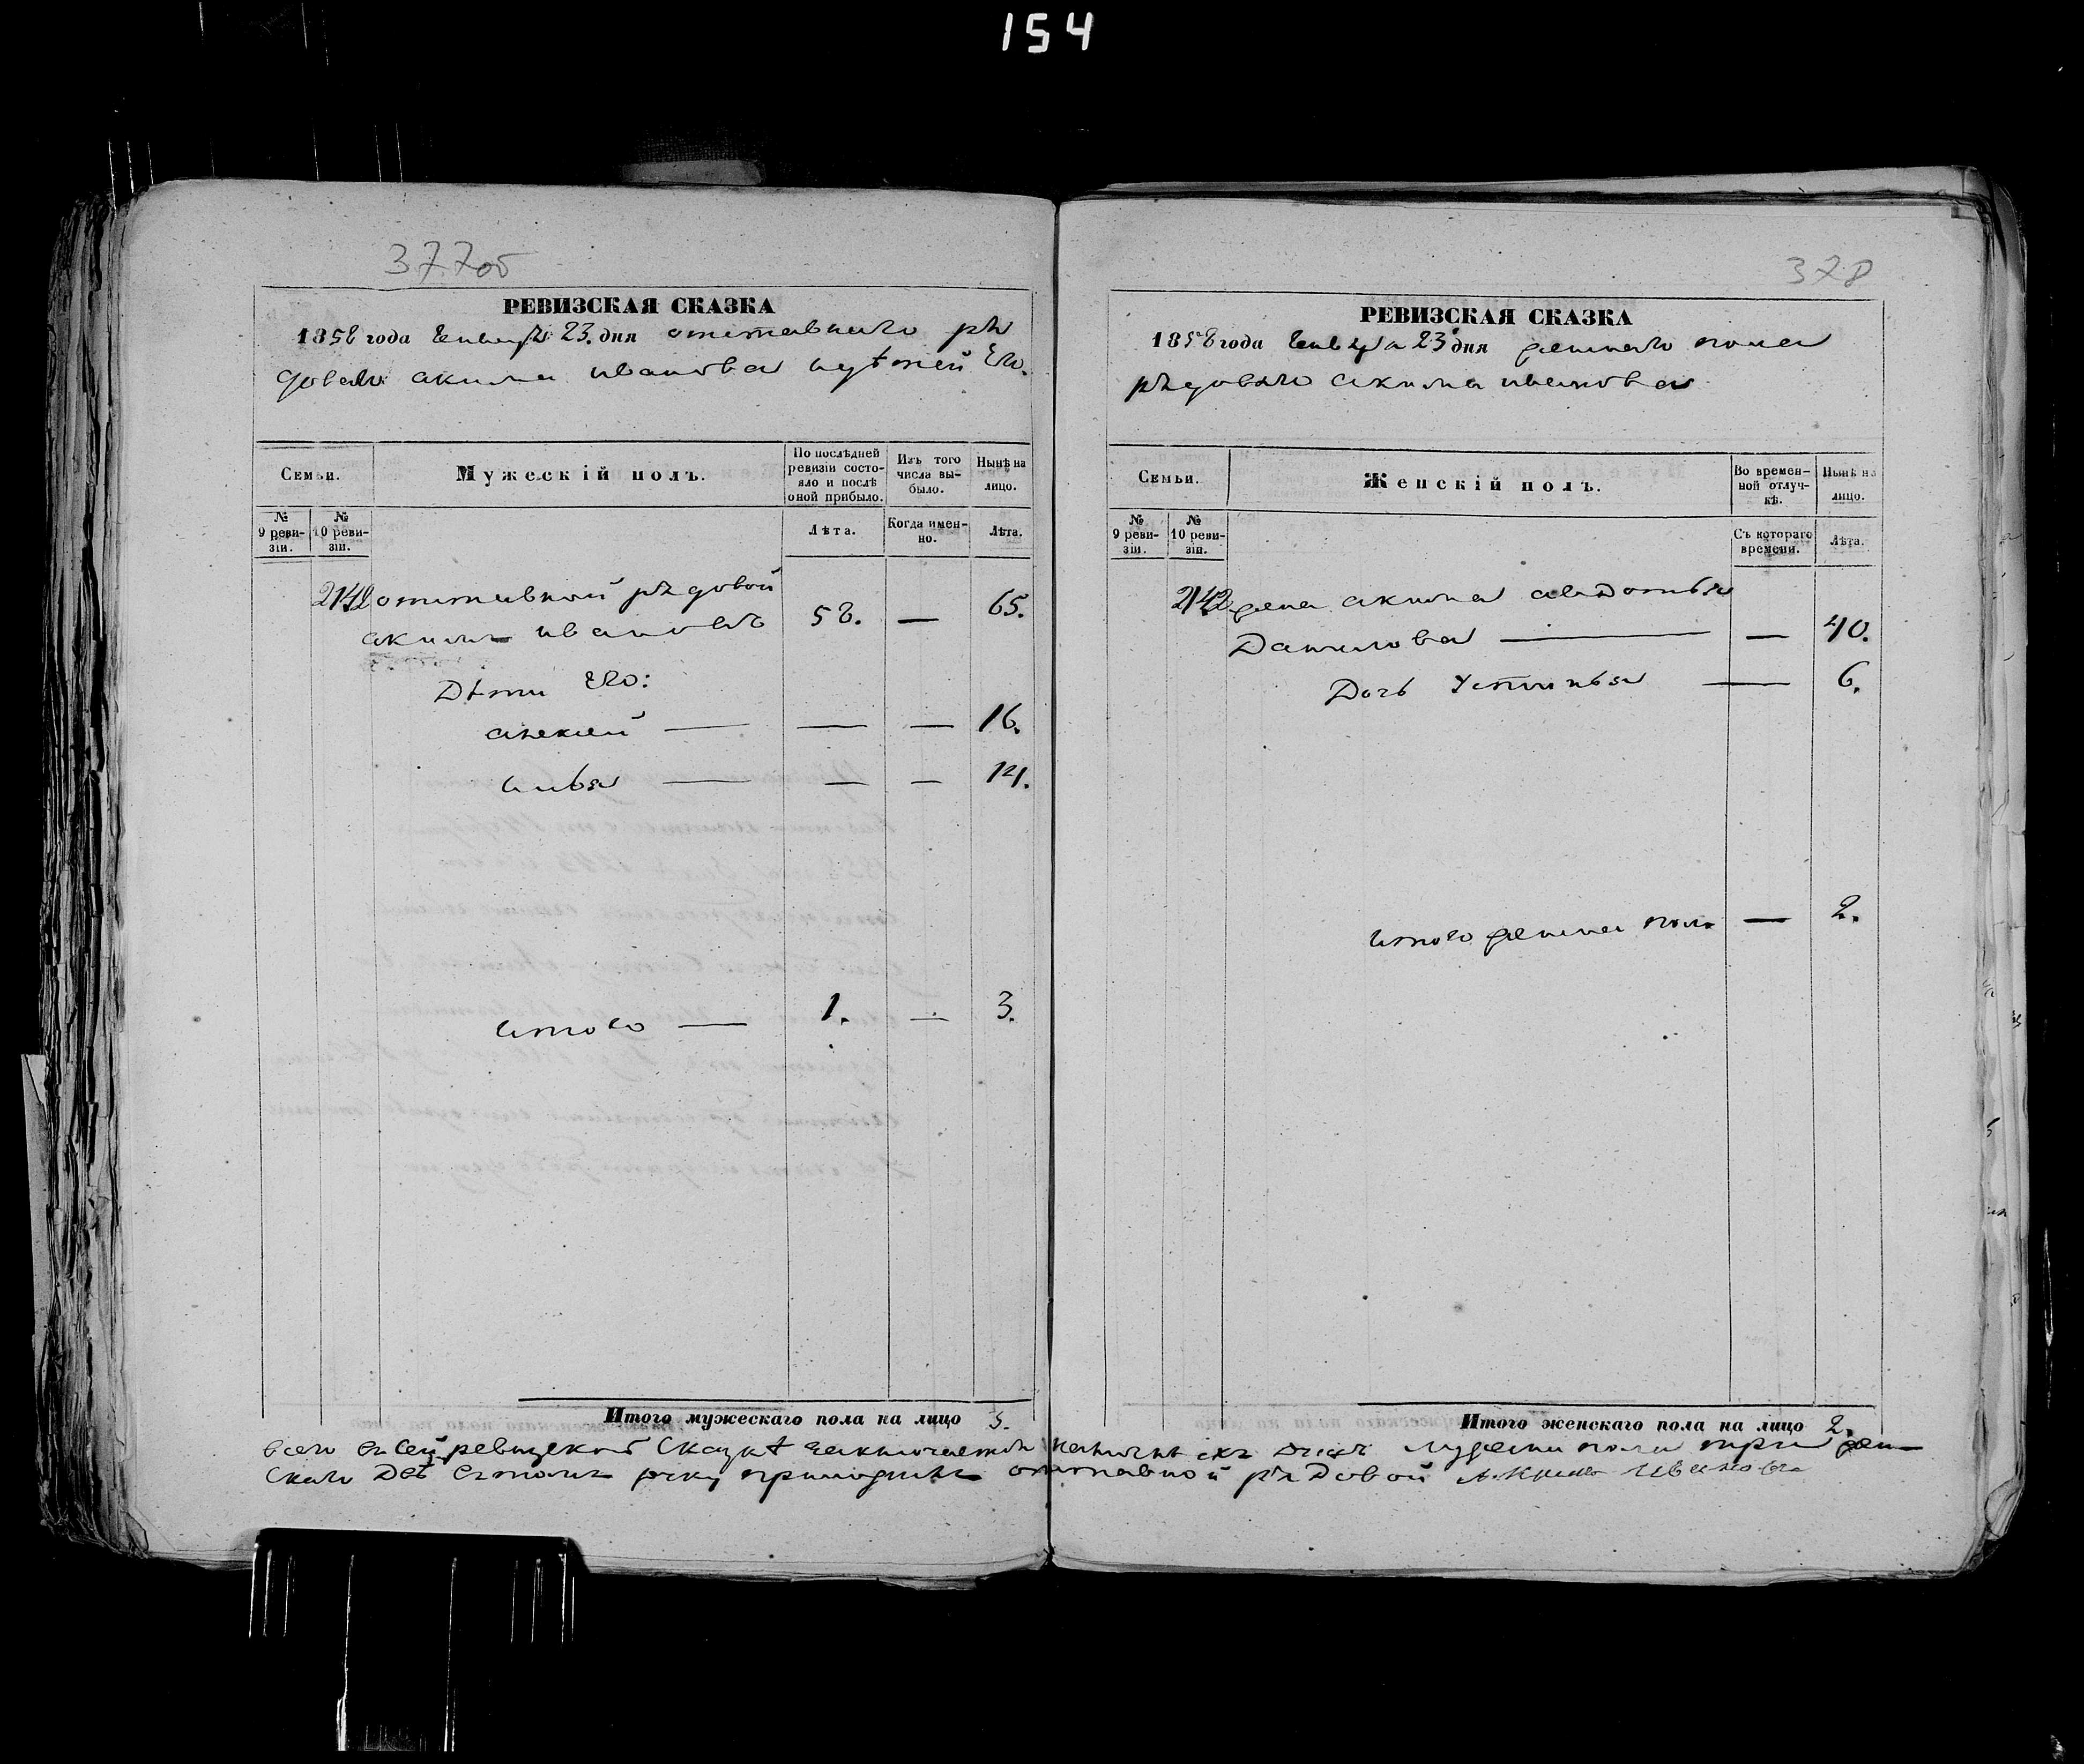 154
377об
РЕВИЗСКАЯ СКАЗКА
1858 года Генваря 23. дня отставнаго ря
доваго акима иванова идѣтей Его.
Семьи.
Мужескій полъ.
По послѣдней ревизіи состояло и послѣ оной прибыло.
Изъ того числа выбыло.
Нынѣ на лицо.
№ 9 ревизіи.
№ 10 ревизіи.
Лѣта.
Когда именно.
Лѣта.
2142 отставной рядовой
акимъ ивановъ 58. — 65.
Дѣти Его:
алексей — — — 16.
илья — — — 14.
итого — 1. — 3.
Итого мужескаго пола на лицо 3.
378
РЕВИЗСКАЯ СКАЗКА
1858 года Генваря 23 дня женскаго пола
рядоваго акима иванова
Семьи.
Женскій полъ.
Во временной отлучкѣ.
Нынѣ на лицо.
№ 9 ревизіи.
№ 10 ревизіи.
Съ котораго времени.
Лѣта.
2142 жена акима авдотья
Данилова — — 40.
Дочь Устинья — 6.
итого женска пола — 2.
Итого женскаго пола на лицо 2.
всего въ сей ревизской Сказкѣ заключается наличныхъ душъ мужеска пола три жен—
скаго Двѣ вътомъ руку приложилъ отставной ряДовой Акимъ Ивановъ